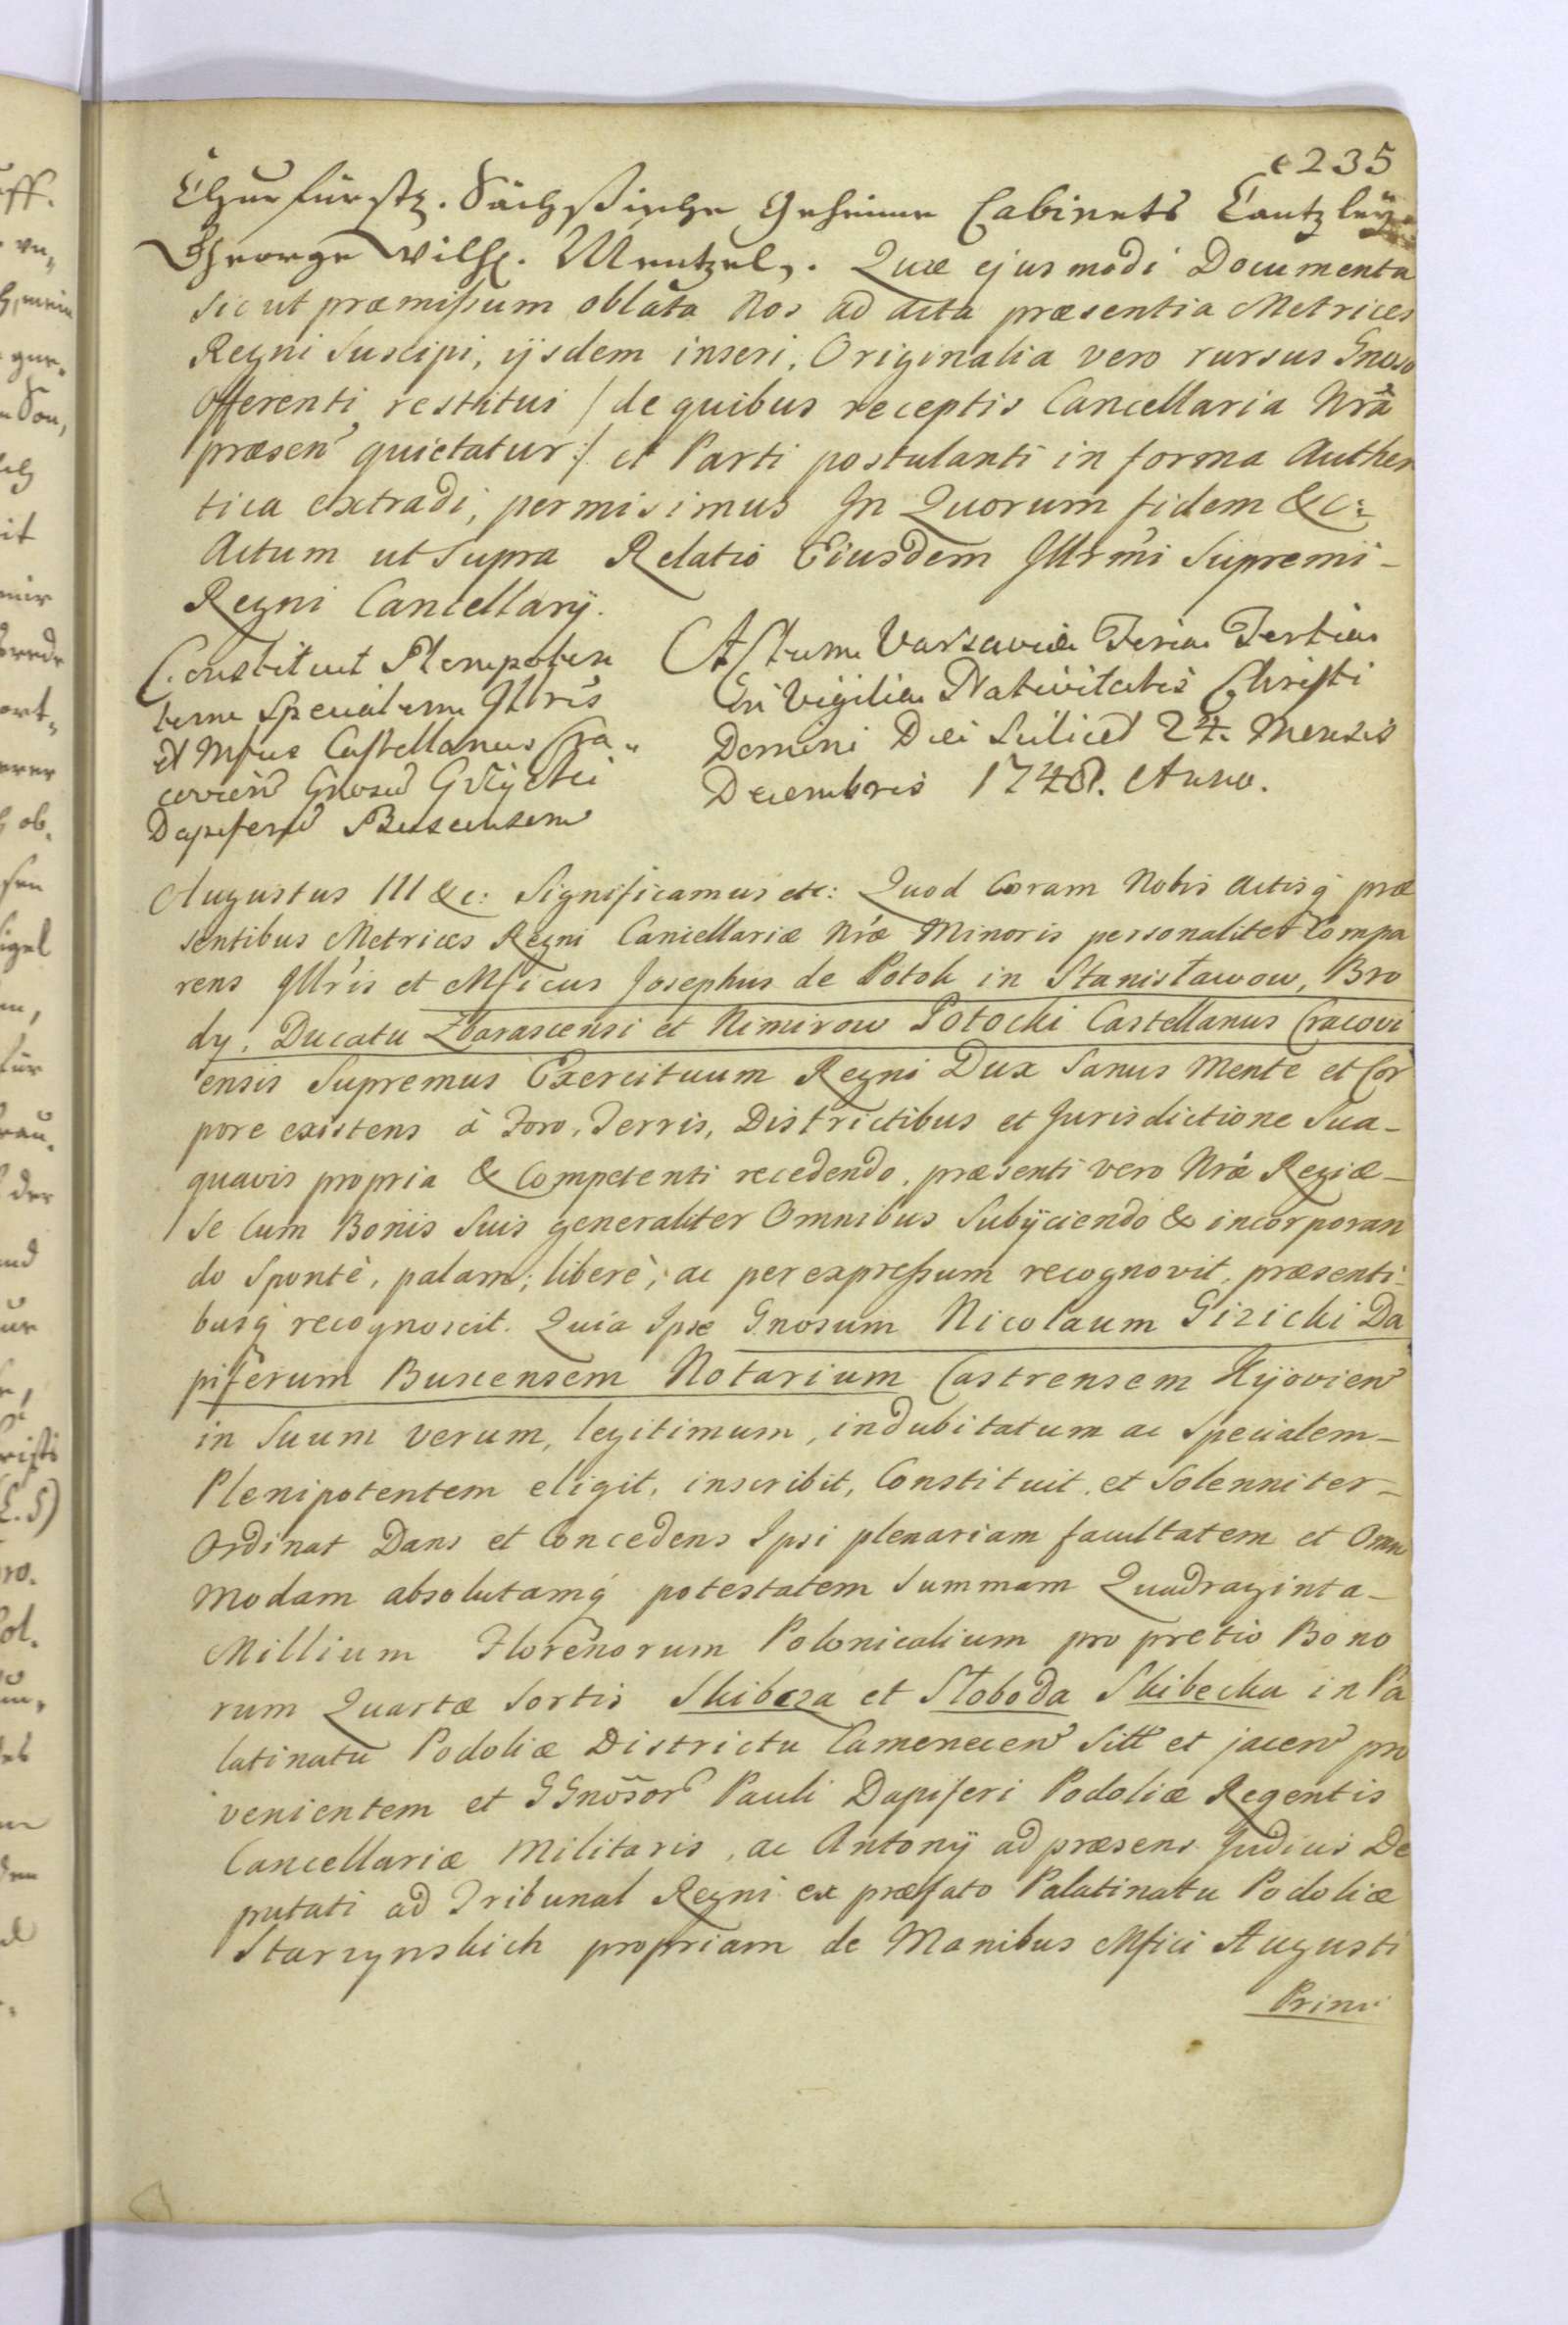 235
Churfürstl. Sächsische Geheime Cabinets Cantzley
George Wilh. Mentzel. Quæ ejusmodi Documenta
sic ut præmissum oblata Nos ad acta præsentia Metrices
Regni Suscipi, ijsdem inseri, Originalia vero rursus Gnoso
Offerenti restitui /de quibus receptis Cancellaria Nrã
præsen quietatur:/ et Parti postulanti in forma Authen
tica extradi, permisimus In Quorum fidem &c:
Actum ut Supra Relatio Eiusdem Illrmi Supremi-
Regni Cancellarij.
Constituit Plenipoten
tem Specialem Illris
et Mfcus Castellanus Cra„
covien Gnosu Giżycki
Dapiferu Buscensem
Actum Varsaviæ Feria Tertia
In Vigilia Nativitatis Christi
Domini Diei Scilicet 24. Mensis
Decembris 1748. Anno.
Augustus III &c: Significamus etc: Quod Coram Nobis actisq́ præ
sentibus Metrices Regni Cancellariæ Nræ Minoris personaliter Compa
rens Illris et Mficus Josephus de Potok in Stanisławow, Bro
dy, Ducatu Zbarascensi et Nimirow Potocki Castellanus Cracovi
ensis Supremus Exercituum Regni Dux Sanus Mente et Cor
pore existens à Foro, Terris, Districtibus et Jurisdictione Sua-
quavis propria & Competenti recedendo, præsenti vero Nræ Regiæ-
Se Cum Bonis Suis generaliter Omnibus Subijciendo & incorporan
do Spontè, palam, liberè, ac per expressum recognovit, præsenti-
busq́ recognoscit. Quia Ipse Gnosum Nicolaum Gizicki Da
piferum Buscensem Notarium Castrensem Kijovien
in Suum verum, legitimum, indubitatum ac Specialem-
Plenipotentem eligit, inscribit, Constituit, et Solenniter-
Ordinat Dans et Concedens Ipsi plenariam facultatem et Omni
modam absolutamq́ potestatem Summam Quadraginta-
Millium Florenorum Polonicalium pro pretio Bono
rum Quartæ Sortis Skibcza et Słoboda Skibecka in Pa
latinatu Podoliæ Districtu Camenecen Sitt et jacen pro
venientem et GGnosor Pauli Dapiferi Podoliæ Regentis
Cancellariæ Militaris, ac Antonij ad præsens Judicis De
putati ad Tribunal Regni ex præfato Palatinatu Podoliæ
Starzynskich propriam de Manibus Mfici Augusti
Primi